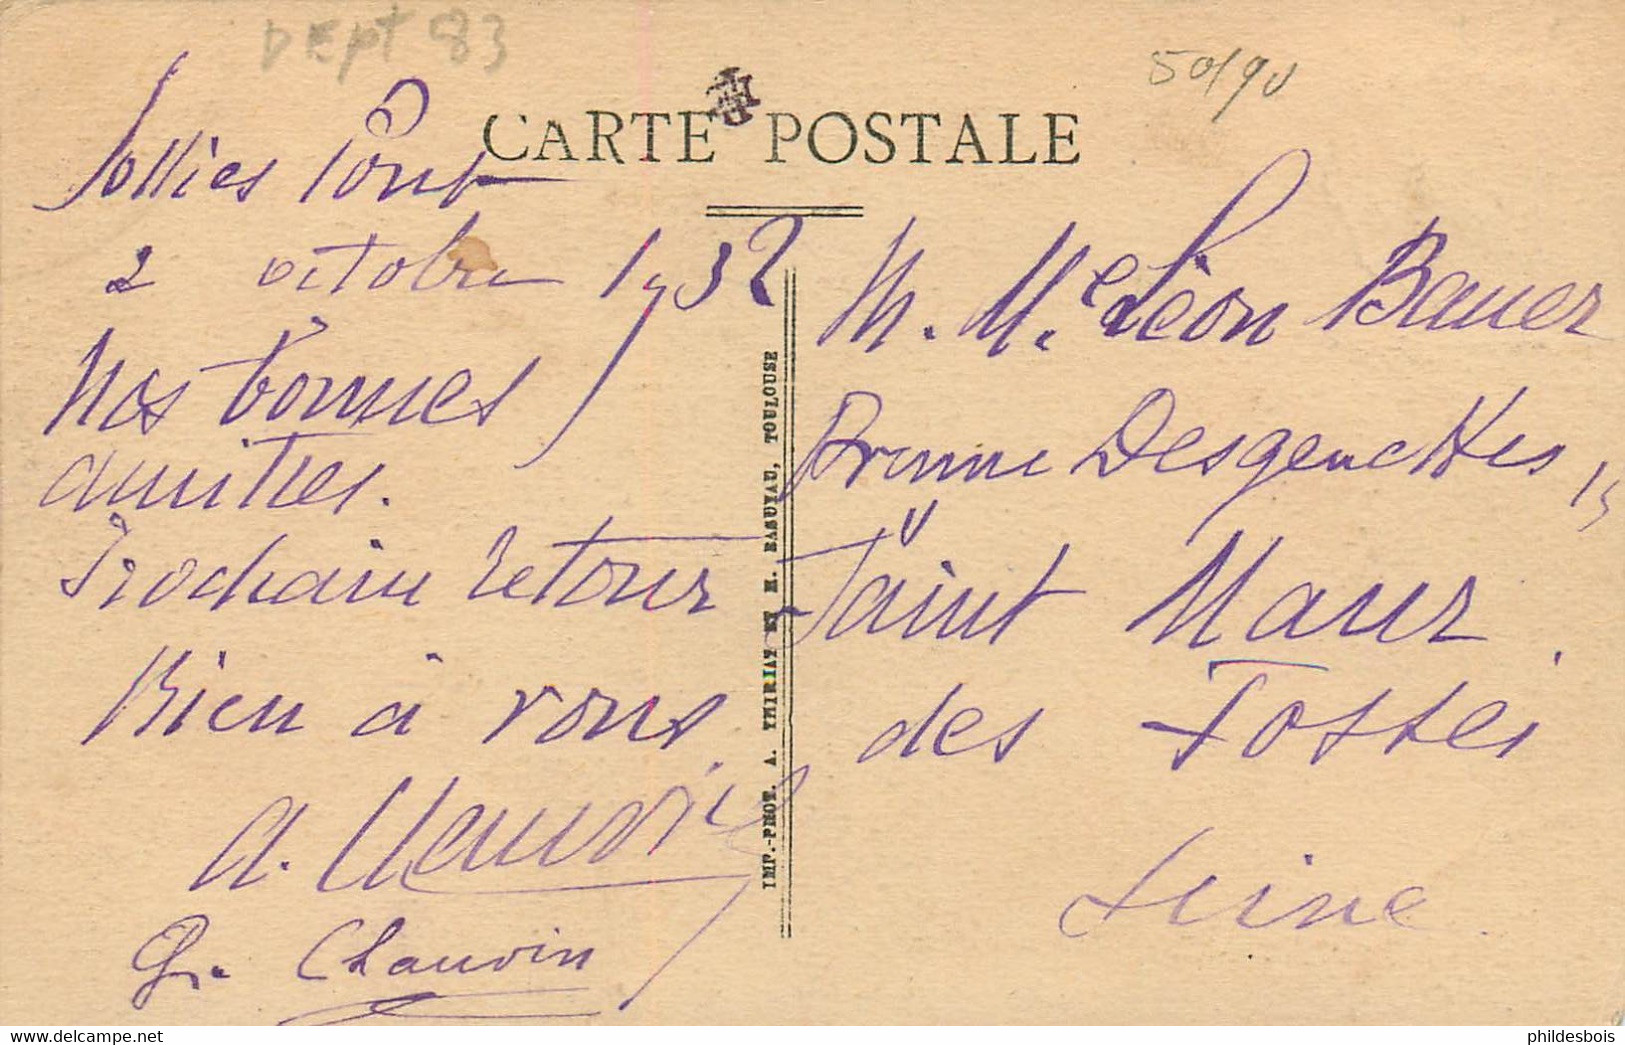 Dept 83
50/90
CARTE POSTALE
Sollies Pont
2 octobre 1932
Nos bonnes
amitiés.
Prochain retour
Bien à vous
A.
G. Chauvin
M. Me Léon Bauer
Avenue Desgenettes 15
Saint Maur
des Fossés
Seine
IMP.-PHOT. A. THIRIAT ET H. BASUYAU, TOULOUSE
phildesbois